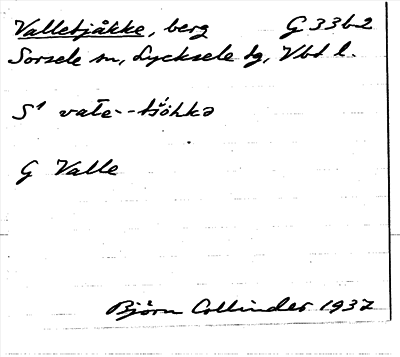 Valletjåkke, berg G 33b2
Sorsele sn, Lycksele tg, Vbt l.
S¹ vaĺe--tšo̊hkə
G Valle
Björn Collinder 1937